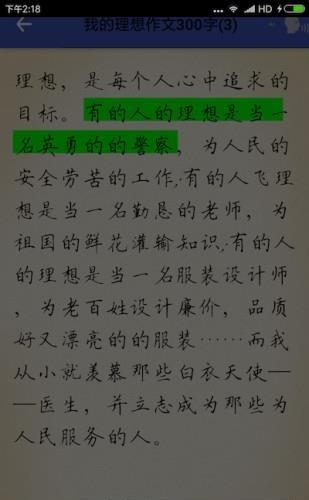 下午2:18
我的理想作文300字(3)
理想，是每个人心中追求的
目标。有的人的理想是当一
名英勇的的警察，为人民的
安全劳苦的工作;有的人飞理
想是当一名勤恳的老师，为
祖国的鲜花灌输知识;有的人
的理想是当一名服装设计师
，为老百姓设计廉价，品质
好又漂亮的的服装……而我
从小就羡慕那些白衣天使—
—医生，并立志成为那些为
人民服务的人。